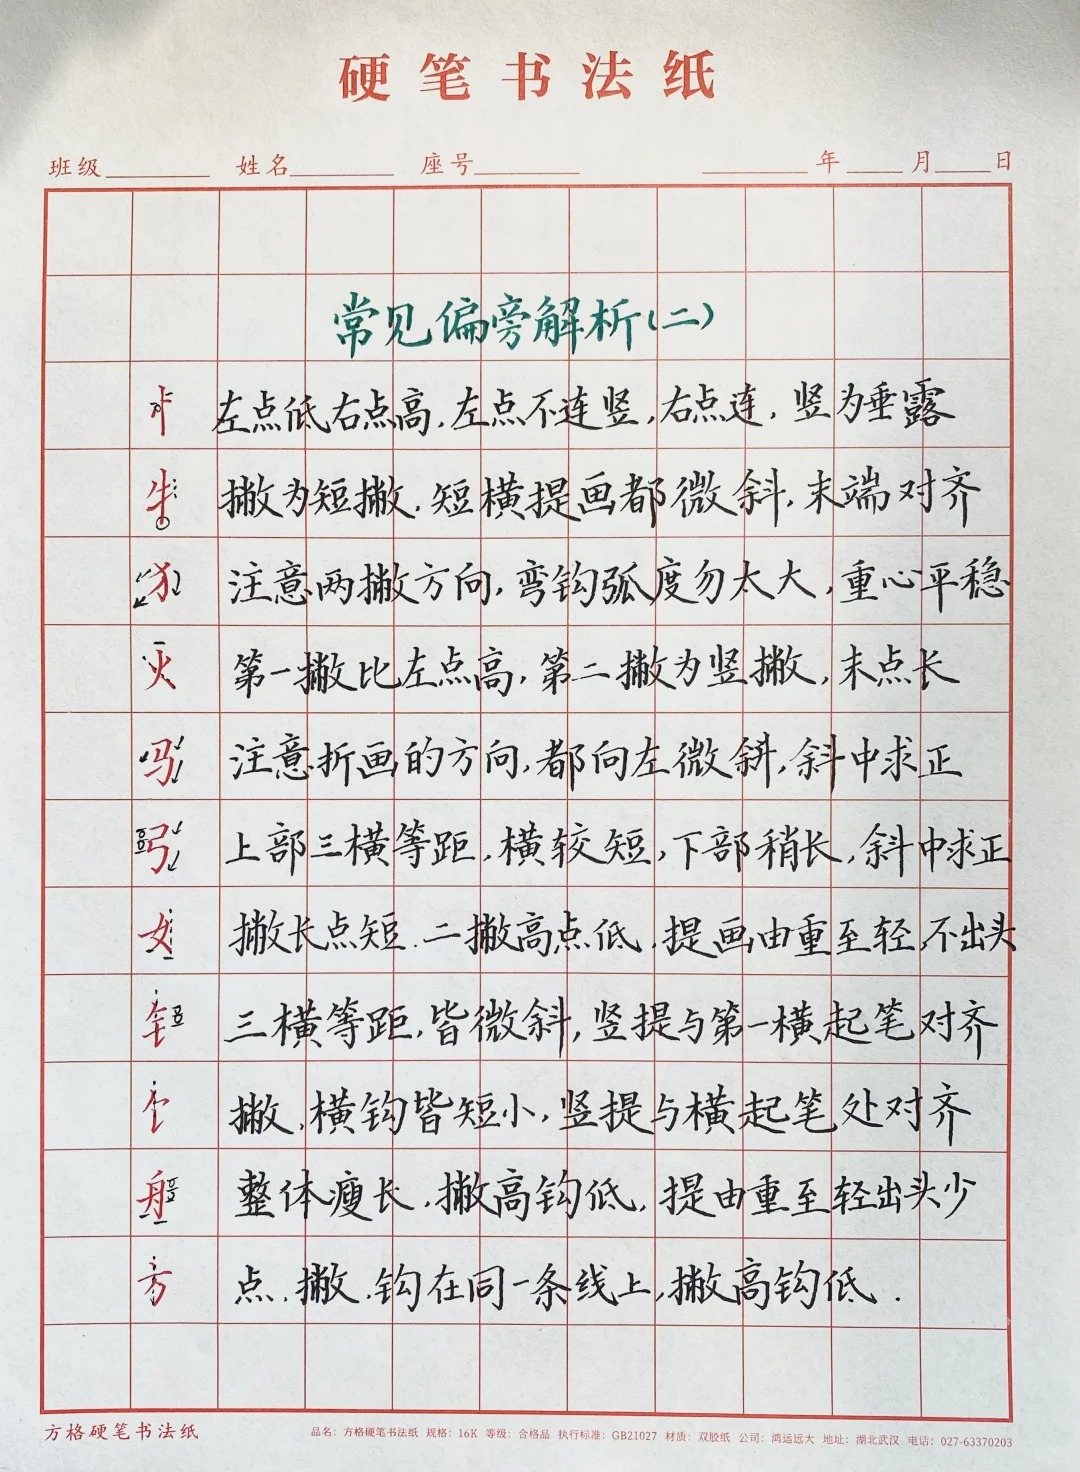 硬笔书法纸
班级 姓名 座号 年 月 日
常见偏旁解析(二)
忄 左点低右点高,左点不连竖,右点连,竖为垂露
牜 撇为短撇,短横提画都微斜,末端对齐
犭 注意两撇方向,弯钩弧度勿太大,重心平稳
火 第一撇比左点高,第二撇为竖撇,末点长
马 注意折画的方向,都向左微斜,斜中求正
弓 上部三横等距,横较短,下部稍长,斜中求正
女 撇长点短,二撇高点低,提画由重至轻,不出头
钅 三横等距,皆微斜,竖提与第一横起笔对齐
饣 撇,横钩皆短小,竖提与横起笔处对齐
舟 整体瘦长,撇高钩低,提由重至轻出头少
方 点,撇,钩在同一条线上,撇高钩低.
方格硬笔书法纸 品名:方格硬笔书法纸 规格:16K 等级:合格品 执行标准:GB21027 材质:双胶纸 公司:鸿运远大 地址:湖北武汉 电话:027-63370203